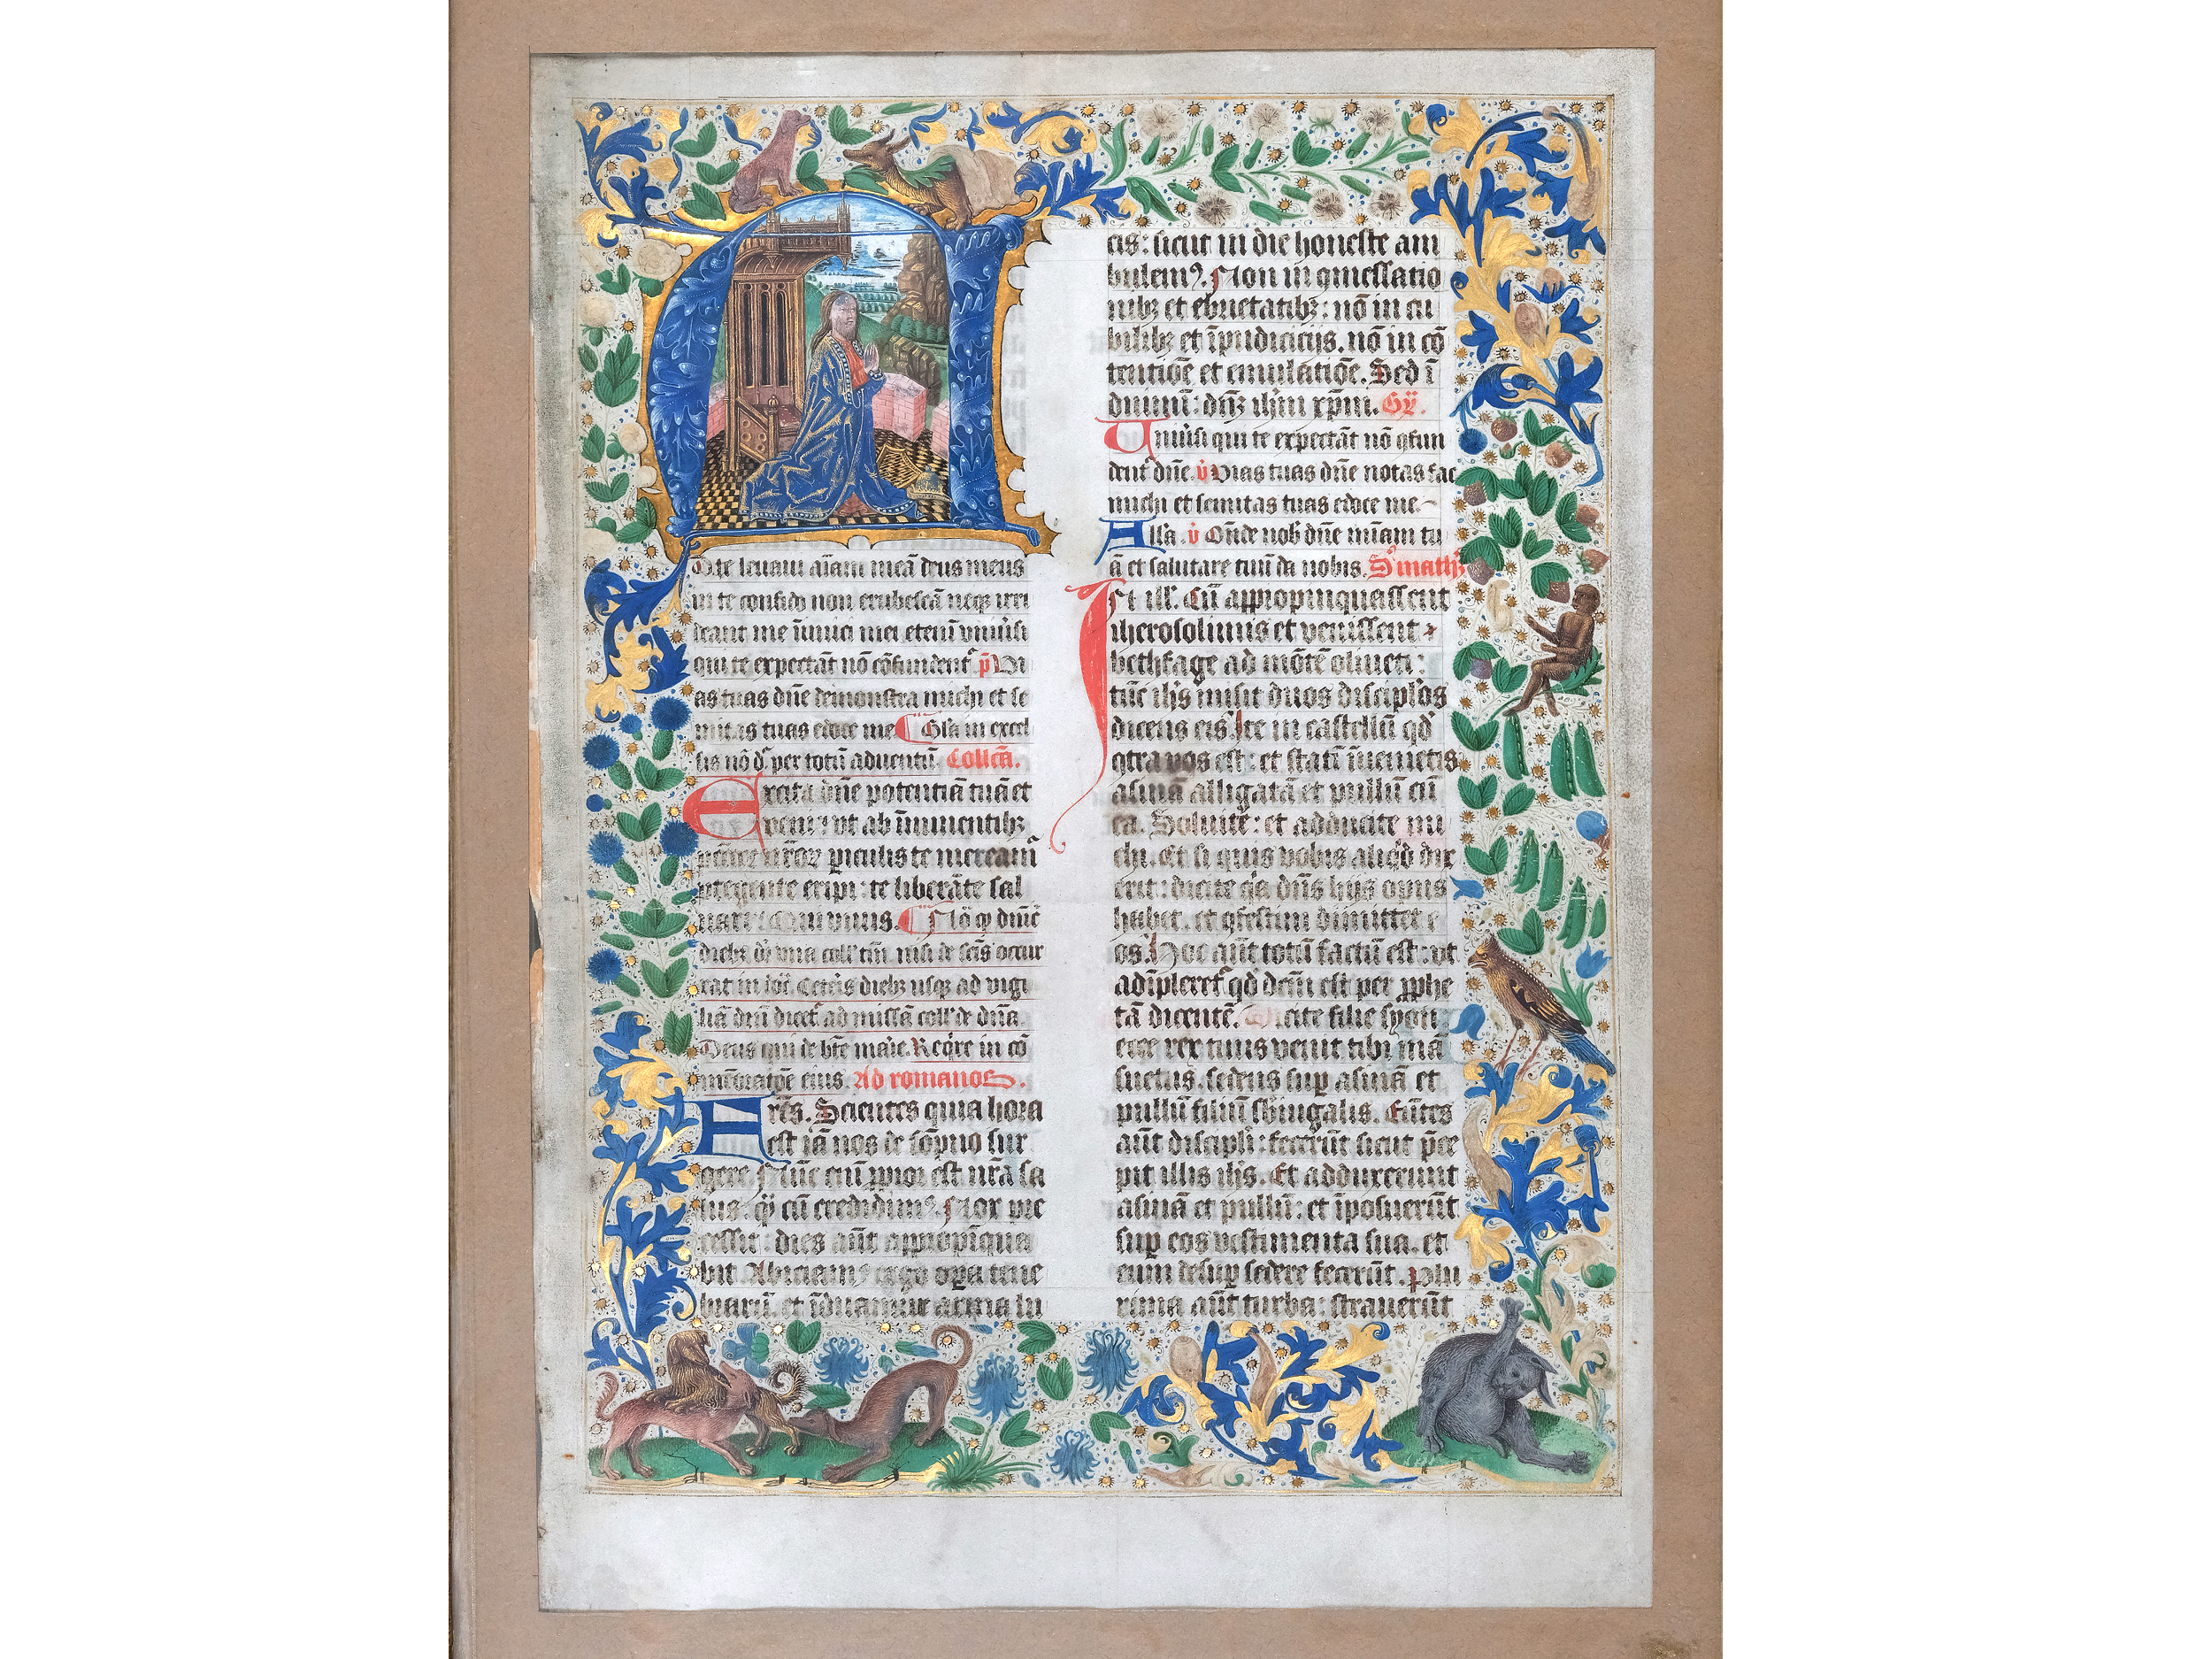 D te leuaui aīam meā deus meus
in te confido non erubescā neqꝫ irri
deant me inimici mei etenī vniuersi
qui te expectāt nō cōfundent᷑ p̄ Vi
as tuas dn̄e demonstra michi et se
mitas tuas edoce me Gl̄a in excel
sis nō d᷑ per totū aduentū. Collcā.
Excita dn̄e potentiā tuā et
veni: vt ab īminentibꝫ
pctōꝝ nr̄oꝝ piculis te meream᷑
ptegente eripi: te liberāte sal
uari. Qui viuis. No ꝙ dnīc̄
diebꝫ d᷑ vna coll̄ tm̄ nisi de scīs occur
rat in
Ceteris diebꝫ usqꝫ ad vigi
liā dn̄i dicet᷑ ad missā coll̄ de dn̄a
Deus qui de bt̄e marie. Reqͥre in cō
memoratōe eius. Ad romanos.
Frēs. Scientes quia hora
est iā nos de sōpno sur
gere. Nūc eni ꝓpior est nr̄a sa
lus: ꝙ cū credidimꝰ. Nox pre
cessit: dies aūt appropīqua
bit. Abiciamꝰ ergo opa tene
braꝝ. et īduamur arma lu
cis: sicut in die honeste am
bulemꝰ. Non in qmessatio
nibꝫ et ebrietatibꝫ: nō in cu
bilibꝫ et īpudicicijs. nō in cō
tentiōe et emulatiōe. Sed ī
duimi: dn̄ꝫ ih̄m xp̄m. Gͬ.
Vniūsi qui te expectāt nō ꝯfun
dent᷑ dn̄e. v̉ Vias tuas dn̄e notas fac
michi et semitas tuas edoce me.
All̄a. v̉ On̄de nob̄ dn̄e mīam tu
ā et salutare tuū da nobis. S. mathꝫ
In ill̄. Cū appropinquassent
iherosolimis et venissent
bethfage ad mōtē oliueti:
tūc ih̄s misit duos discipl̓os
dicens eis. Ite in castellū qd̓
ꝯtra vos est: et statī īuenietis
asinā alligatā et pullū cū
ea. Soluite: et adducite mi
chi. Et si quis vobis aliqd̓ dix
erit: dicite qͥa dn̄s hijs opus
habet. et ꝯfestim dimittet e
os. Hoc aūt totū factū est: vt
adīpleret᷑ qd̓ dcm̄ est per ꝓphe
tā dicentē. Dicite filie syon:
ecce rex tuus venit tibi mā
suetus. sedens sup asinā et
pullū filiū sbiugalis. Eūtes
aūt discipl̓i: fecerūt sicut p̄ce
pit illis ih̄s. Et adduxerunt
asinā et pullū: et īposuerūt
sup eos vestimenta sua. et
eum desup sedere fecerūt. Plu
rima aūt turba: strauerūt